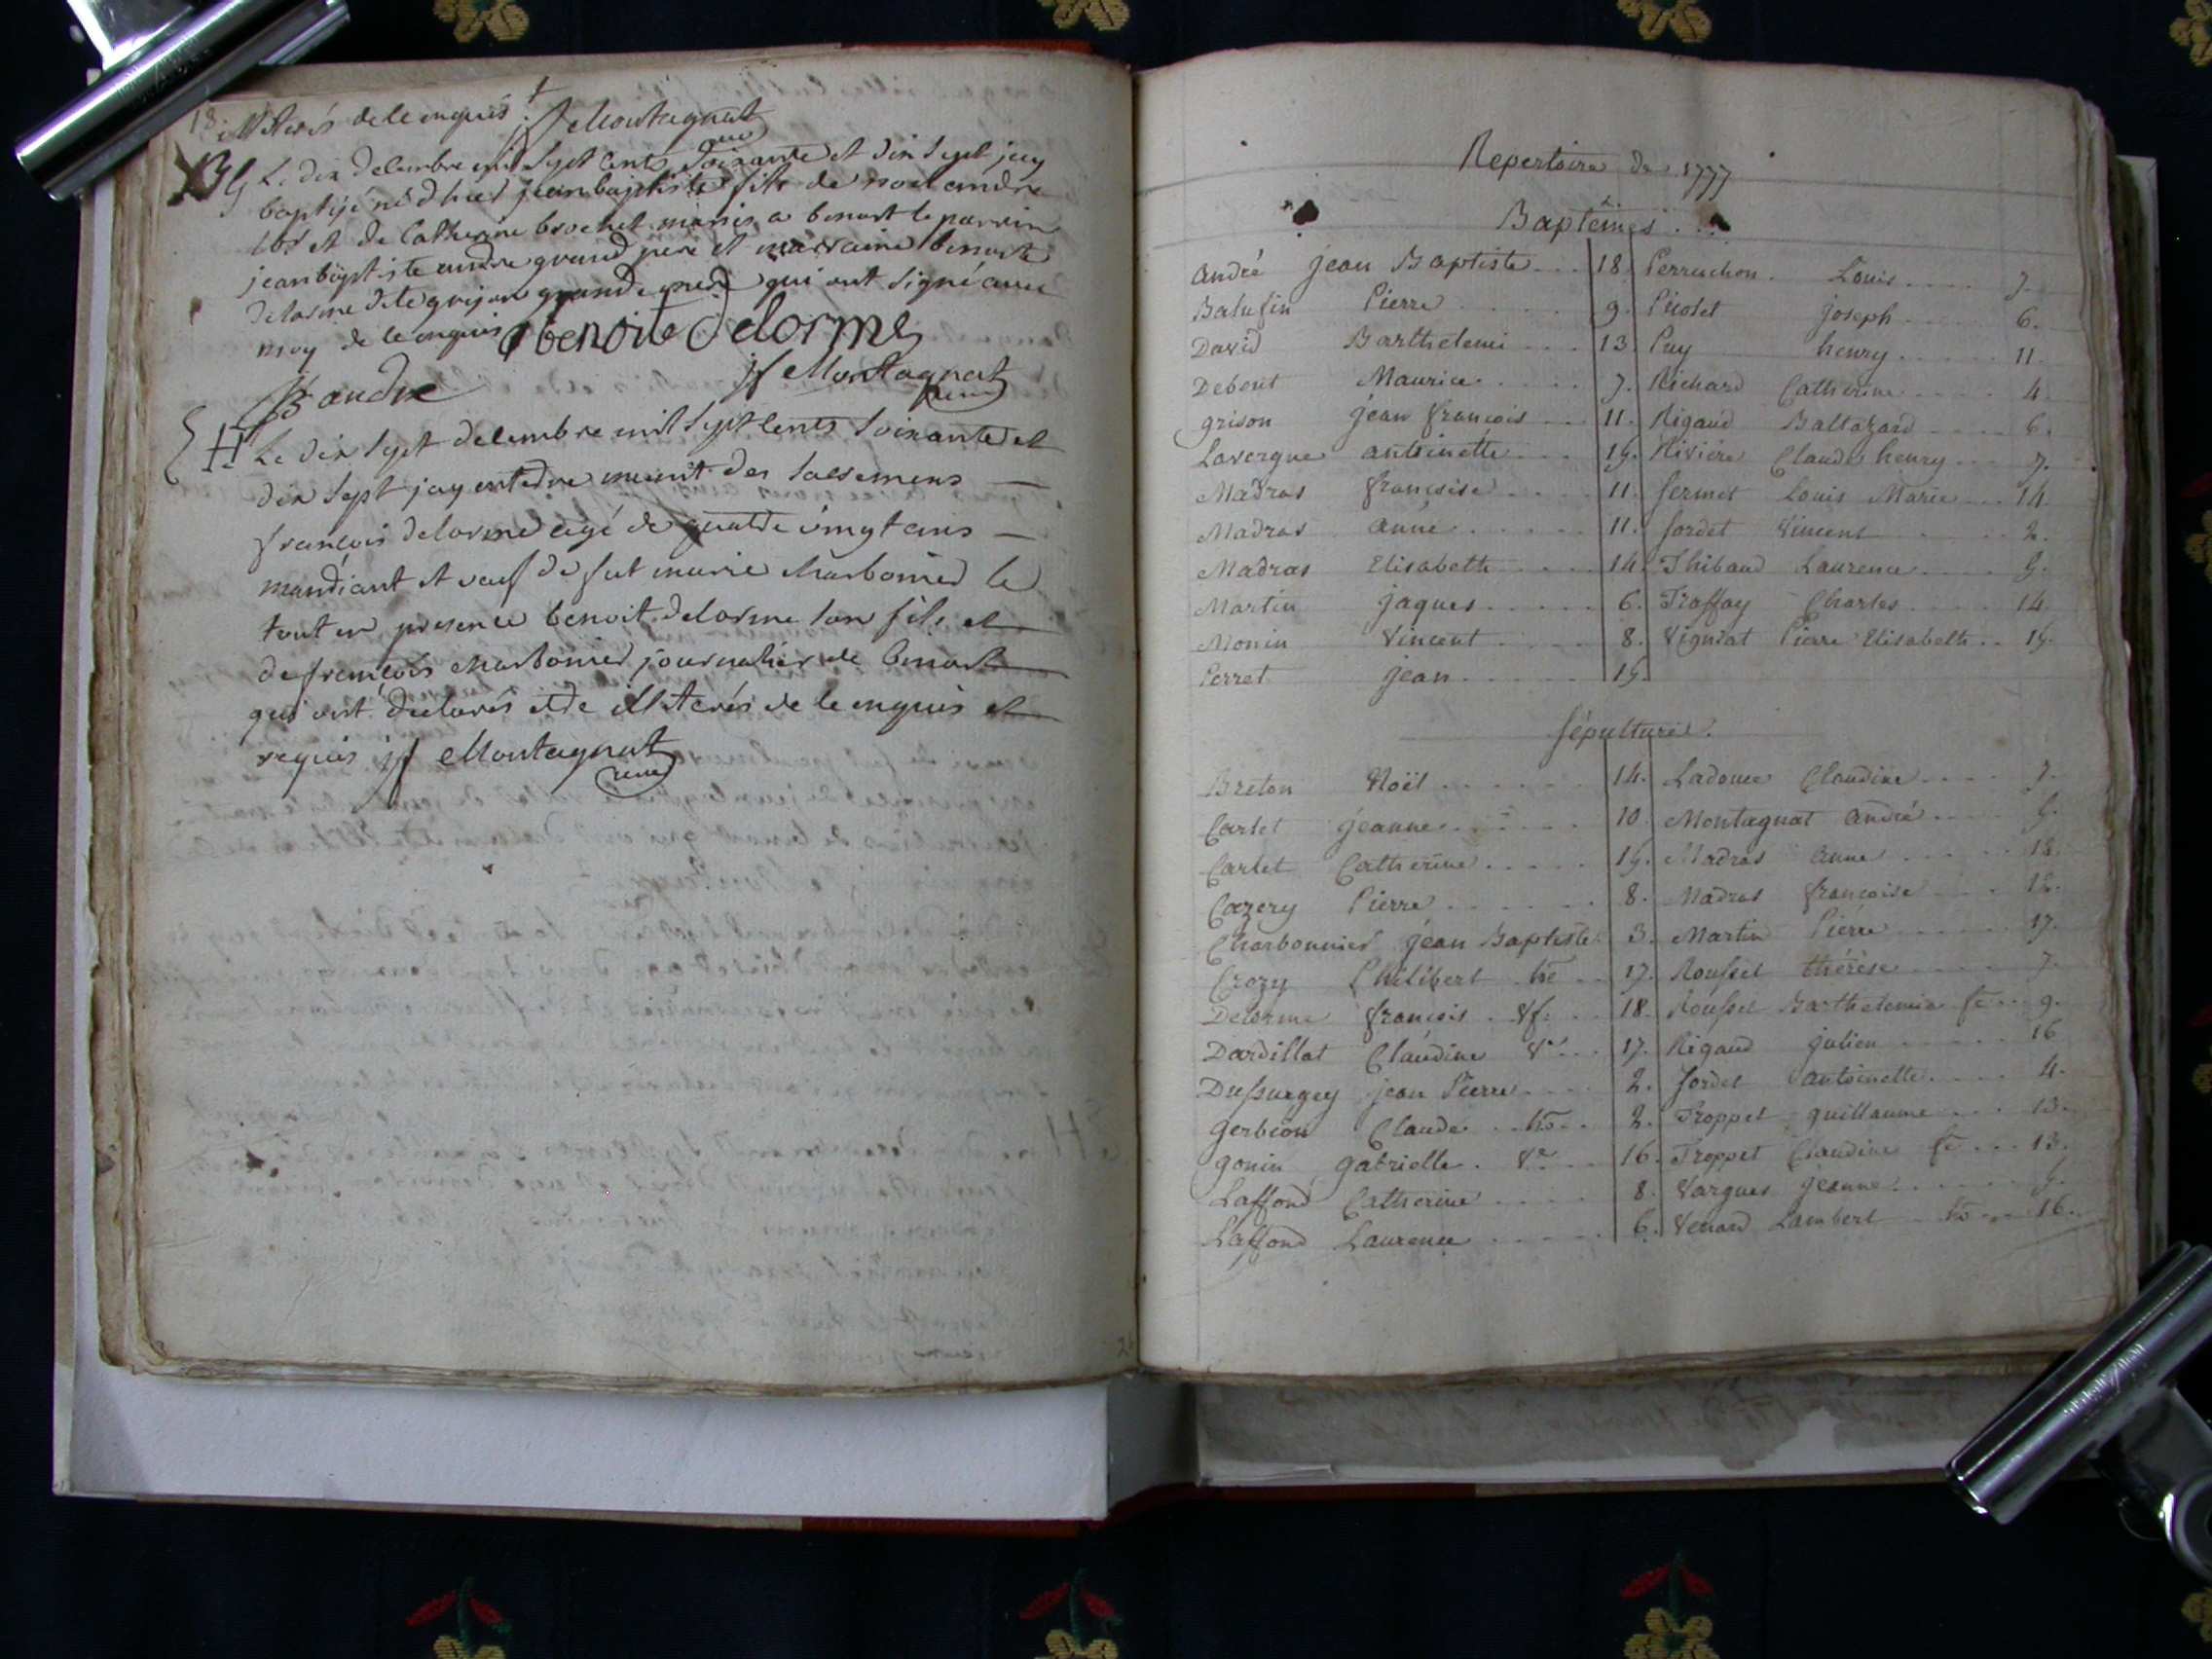 18. illiterés de le enquis jf Montagnat
curé
Le dix decembre mil sept cents soixante et dix sept j'ay
baptisé né d'hier jean baptiste fils de noel andre
et de Catherine brochet mariés a benost le parrain
jean baptiste andre grand pere et marraine benoite
delorme dite grijon grande mere qui ont signé avec
moy de le enquis benoite delorme
jf Montagnat
JB andre curé
H Le dix sept decembre mil sept cents soixante et
dix sept j'ay enterré munit des sacremens
françois delorme agé de quatre vingt ans
mandiant et veuf de fut marie charbonier le
tout en presence benoit delorme son fils et
de françois charbonier journalier de benost
qui ont declarés etde illiterés de le enquis et
requis jf Montagnat
curé
Repertoire de 1777
Baptêmes
André jean Baptiste 18.
Balufin Pierre 9.
David Barthelemi 13
Debout Maurice 7.
grison jean françois 11.
Lavergne antoinette 15.
Madras françoise 11.
Madras anne 11.
Madras Elisabeth 14.
Martin jaques 6.
Monin Vincent 8.
Perret jean 15.
Perruchon Louis 7.
Picolet joseph 6.
Puy henry 11.
Richard Catherine 4.
Rigaud Baltazard 6.
Riviére Claude henry 7.
Sermet Louis Marie 14
Sordet Vincent 2.
Thibaud Laurence 5.
Troffay Charles 14
Vigniat Pierre Elisabeth 15.
Sépultures
Breton Noël 14.
Carlet jeanne 10.
Carlet Catherine 15.
Cazery Pierre 8.
Charbonnier jean Baptiste 3.
Crozy Philibert he 17.
Delorme françois Vf. 18.
Dardillat Claudine Ve 17.
Dussurgey jean Pierre 2.
Gerbéon Claude he 2.
gonin gabrielle Ve 16.
Laffond Catherine 8.
Laffond Laurence 6.
Ladouce Claudine 7.
Montagnat andré 5.
Madras anne 12.
Madras françoise 12.
Martin Pierre 17.
Roussel thérèse 7.
Roussel Barthelemie fe 9.
Rigaud julien 16
Sordet antoinette 4.
Troppet guillaume 13.
Troppet Claudine fe 13.
Vargues jeanne 5.
Venard Lambert he 16.